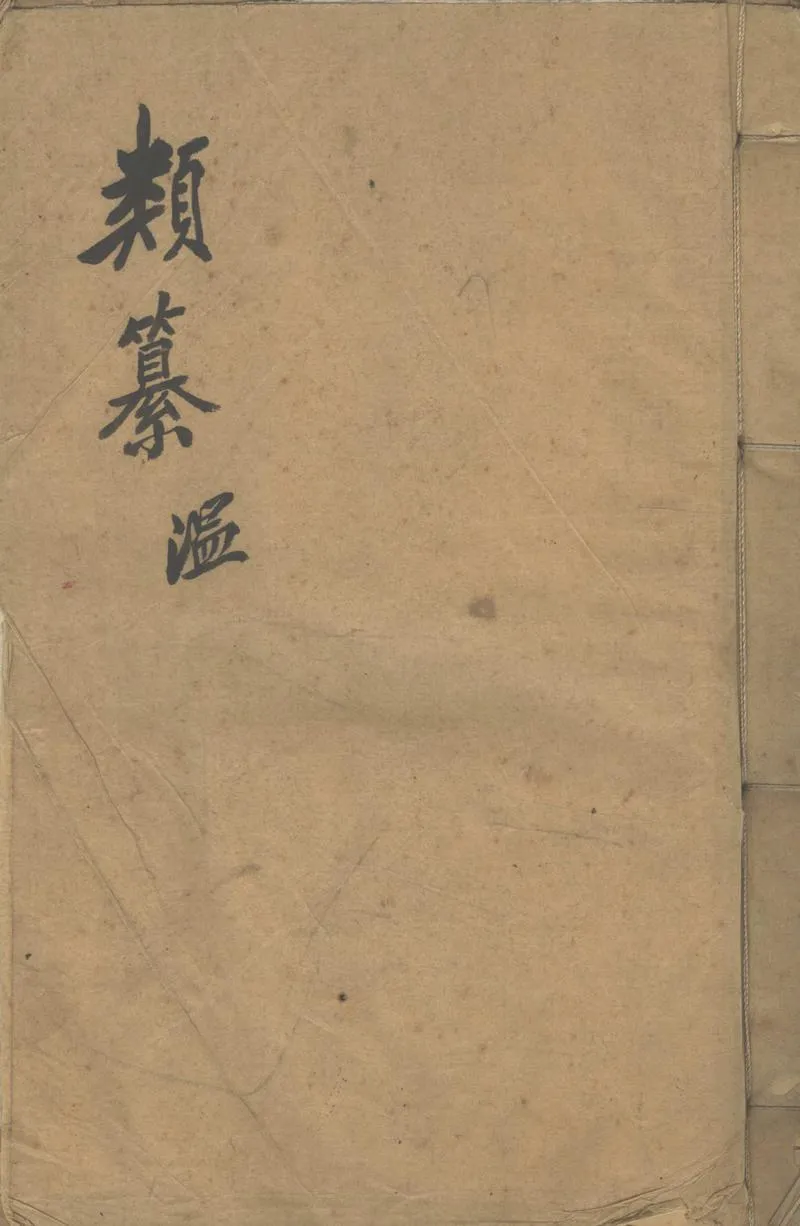 類纂 溫